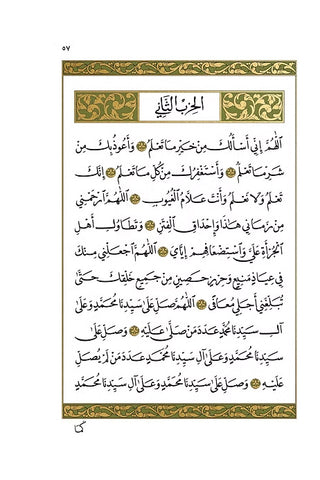 ٥٧
الحِزْبُ الثَّانِي
اَللّٰهُمَّ إِنِّي أَسْأَلُكَ مِنْ خَيْرِ مَا تَعْلَمُ وَأَعُوذُ بِكَ مِنْ
شَرِّ مَا تَعْلَمُ وَأَسْتَغْفِرُكَ مِنْ كُلِّ مَا تَعْلَمُ إِنَّكَ
تَعْلَمُ وَلَا نَعْلَمُ وَأَنْتَ عَلَّامُ الْغُيُوبِ اَللّٰهُمَّ ارْحَمْنِي
مِنْ زَمَانِي هٰذَا وَإِحْدَاقِ الْفِتَنِ وَتَطَاوُلِ أَهْلِ
الْجُرْأَةِ عَلَيَّ وَاسْتِضْعَافِهِمْ إِيَّايَ اَللّٰهُمَّ اجْعَلْنِي مِنْكَ
فِي عِيَاذٍ مَنِيعٍ وَحِرْزٍ حَصِينٍ مِنْ جَمِيعِ خَلْقِكَ حَتَّىٰ
تُبَلِّغَنِي أَجَلِي مُعَافًى اَللّٰهُمَّ صَلِّ عَلَىٰ سَيِّدِنَا مُحَمَّدٍ وَعَلَىٰ
آلِ سَيِّدِنَا مُحَمَّدٍ عَدَدَ مَنْ صَلَّىٰ عَلَيْهِ وَصَلِّ عَلَىٰ
سَيِّدِنَا مُحَمَّدٍ وَعَلَىٰ آلِ سَيِّدِنَا مُحَمَّدٍ عَدَدَ مَنْ لَمْ يُصَلِّ
عَلَيْهِ وَصَلِّ عَلَىٰ سَيِّدِنَا مُحَمَّدٍ وَعَلَىٰ آلِ سَيِّدِنَا مُحَمَّدٍ
كَمَا